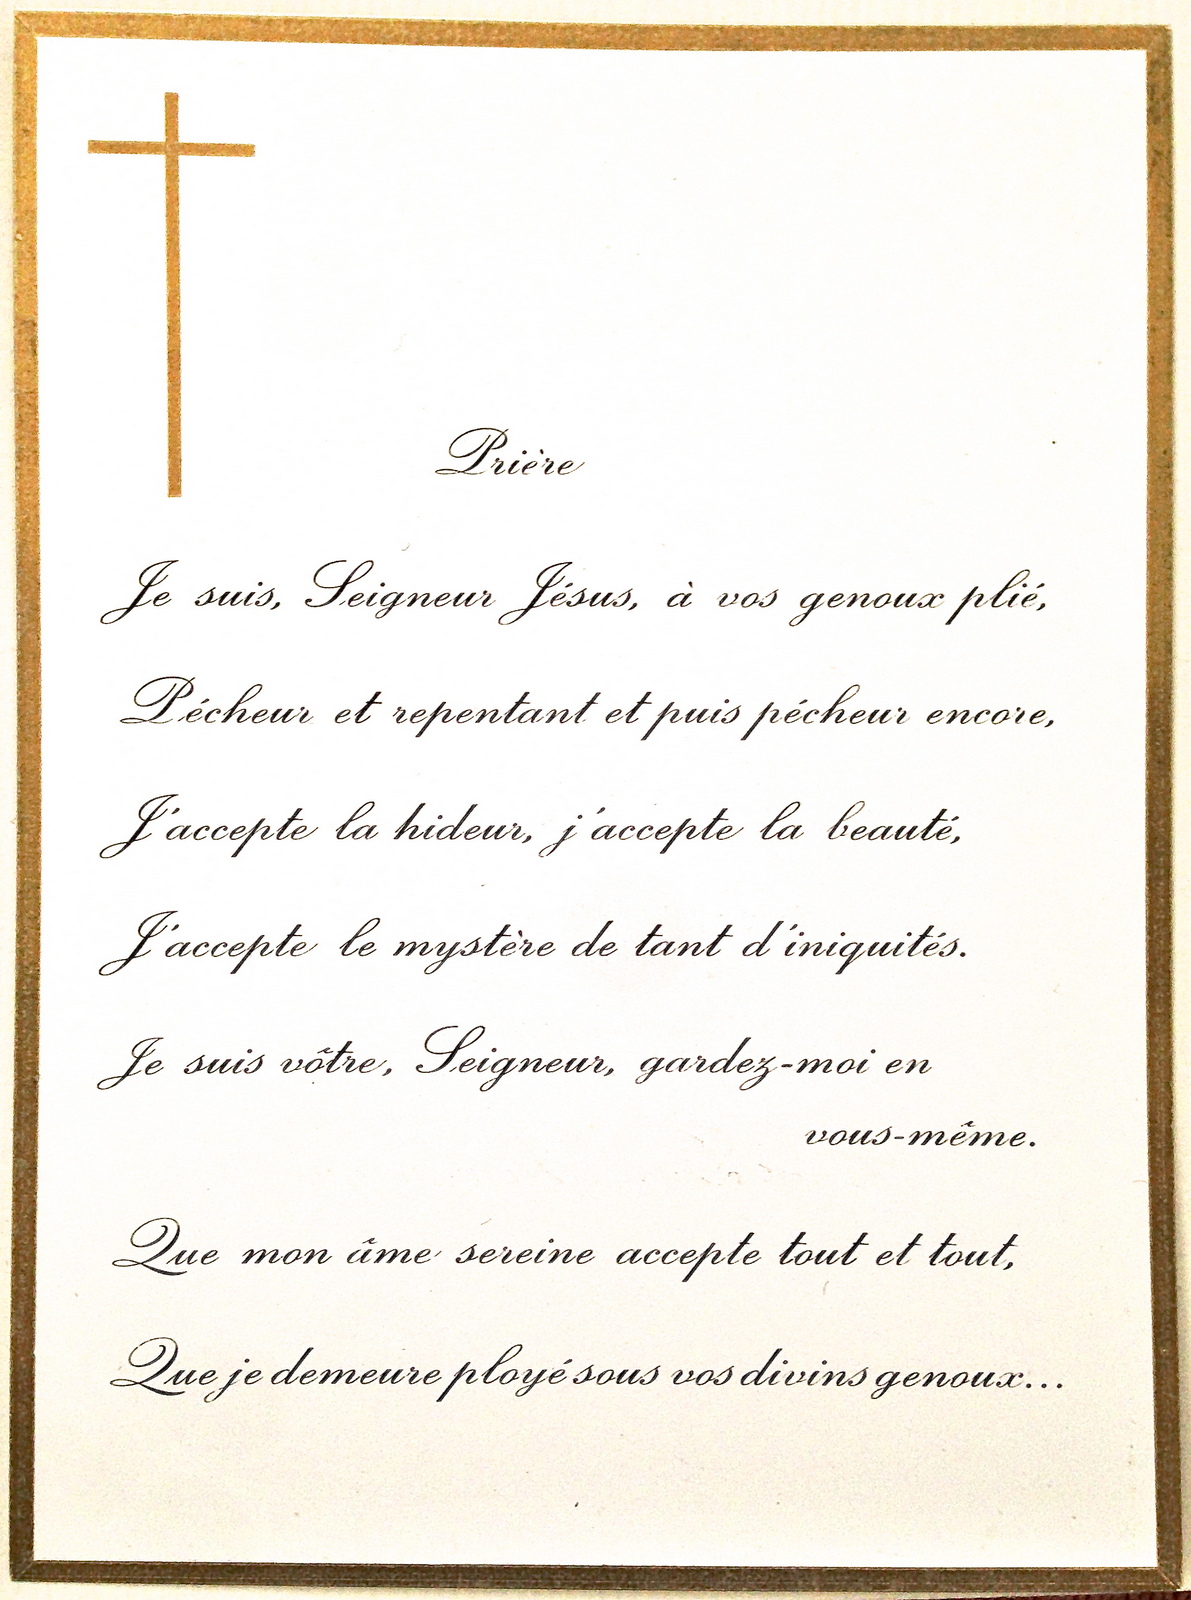 Prière
Je suis, Seigneur Jésus, à vos genoux plié,
Pécheur et repentant et puis pécheur encore,
J'accepte la hideur, j'accepte la beauté,
J'accepte le mystère de tant d'iniquités.
Je suis vôtre, Seigneur, gardez-moi en
vous-même.
Que mon âme sereine accepte tout et tout,
Que je demeure ployé sous vos divins genoux...